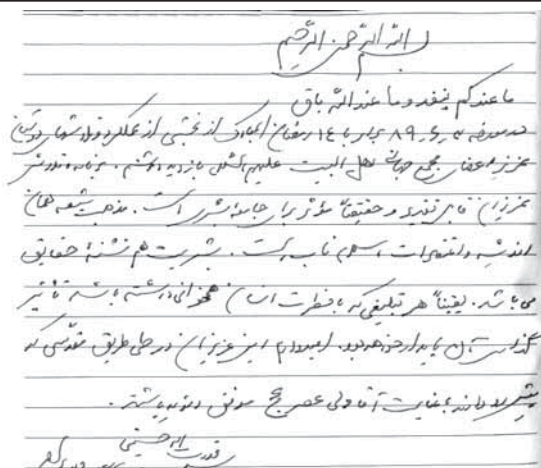 بسم الله الرحمن الرحیم
ما عندکم ینفد و ما عند الله باق
۸۹،۶،۳ برابر با ۱۴ رمضان المبارک از بخشی از عملکرد و تلاشهای دوستان
عزیزم اعضای مجمع جهانی اهل البیت علیهم السلام بازدید داشتم.
عزیزان قابل تقدیر و حقیقتاً مؤثر برای جامعه بشری است. مذهب شیعه همان
اندیشه و تفکرات اسلام ناب است. بشریت هم تشنهٔ حقایق
می باشد. یقیناً هر تبلیغی که با فطرت انسان همخوانی داشته باشد تأثیر
گذاریش پایدار خواهد بود. امیدوارم این عزیزان در طی طریق مقدسی که
پیش رو دارند با عنایت آقا ولی عصر عج موفق و مؤید باشند.
قدرت اله حسینی